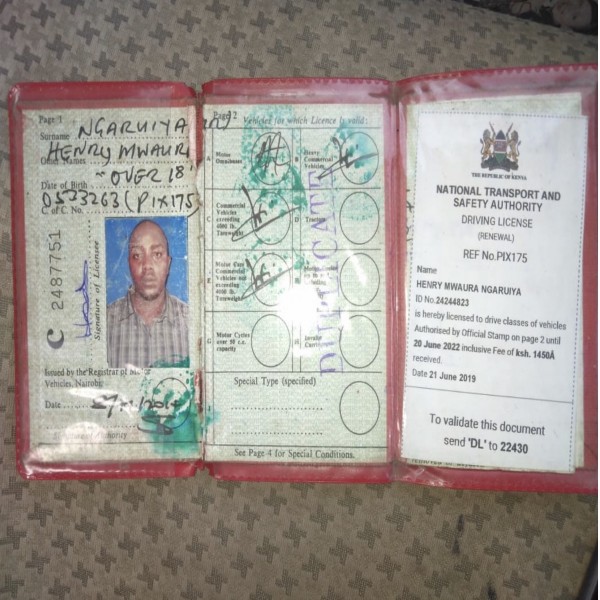 Page 1
Surname NGARUIYA
HENRY MWAURA
Other Names
"OVER 18"
Date of Birth
0533263 (PIX175)
C. of C. No.
C 2487751
Signature of Licensee
Issued by the Registrar of Motor
Vehicles, Nairobi
Date
Authority
Page 2
Vehicles for which Licence is valid:
A Motor Omnibuses
B Heavy Commercial Vehicles
C Commercial Vehicles exceeding 4000 lb. Tareweight
D
E Motor Cars Commercial Vehicles not exceeding 4000 lb. Tareweight
F
G Motor Cycles over 50 c.c. capacity
H Invalid
DUPLICATE
Special Type (specified)
See Page 4 for Special Conditions.
THE REPUBLIC OF KENYA
NATIONAL TRANSPORT AND
SAFETY AUTHORITY
DRIVING LICENSE
(RENEWAL)
REF No.PIX175
Name
HENRY MWAURA NGARUIYA
ID No.24244823
is hereby licensed to drive classes of vehicles
Authorised by Official Stamp on page 2 until
20 June 2022 inclusive Fee of ksh. 1450Â
received.
Date 21 June 2019
To validate this document
send 'DL' to 22430